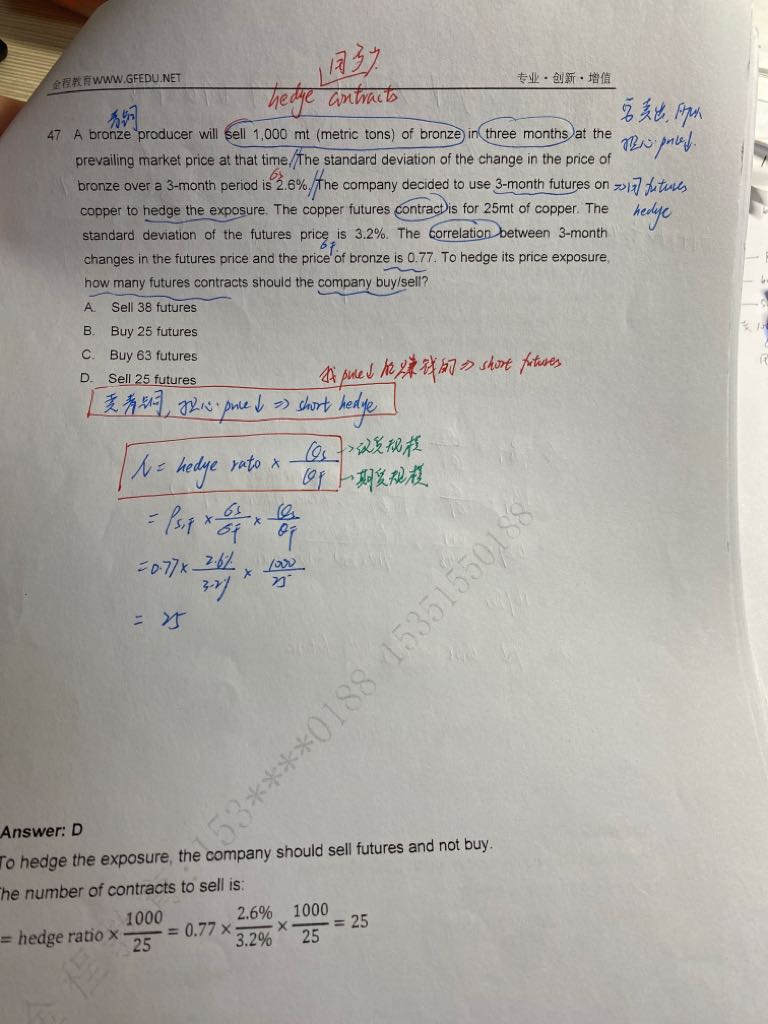 用多少
金程教育WWW.GFEDU.NET
专业·创新·增值
hedge contracts
青铜
47 A bronze producer will sell 1,000 mt (metric tons) of bronze in three months at the
担心price↓
prevailing market price at that time. The standard deviation of the change in the price of
6s
bronze over a 3-month period is 2.6%. The company decided to use 3-month futures on
⇒用futures
copper to hedge the exposure. The copper futures contract is for 25mt of copper. The
hedge
standard deviation of the futures price is 3.2%. The correlation between 3-month
6f
changes in the futures price and the price of bronze is 0.77. To hedge its price exposure,
how many futures contracts should the company buy/sell?
A. Sell 38 futures
B. Buy 25 futures
C. Buy 63 futures
D. Sell 25 futures
找price↓能赚钱的⇒short futures
卖青铜, 担心price↓⇒short hedge
N = hedge ratio × Qs/Qf
→现货规模
→期货规模
= ρs,f × 6s/6f × Qs/Qf
=0.77× 2.6%/3.2% × 1000/25
= 25
153****0188 15351550188
Answer: D
To hedge the exposure, the company should sell futures and not buy.
he number of contracts to sell is:
= hedge ratio × 1000/25 = 0.77 × 2.6%/3.2% × 1000/25 = 25